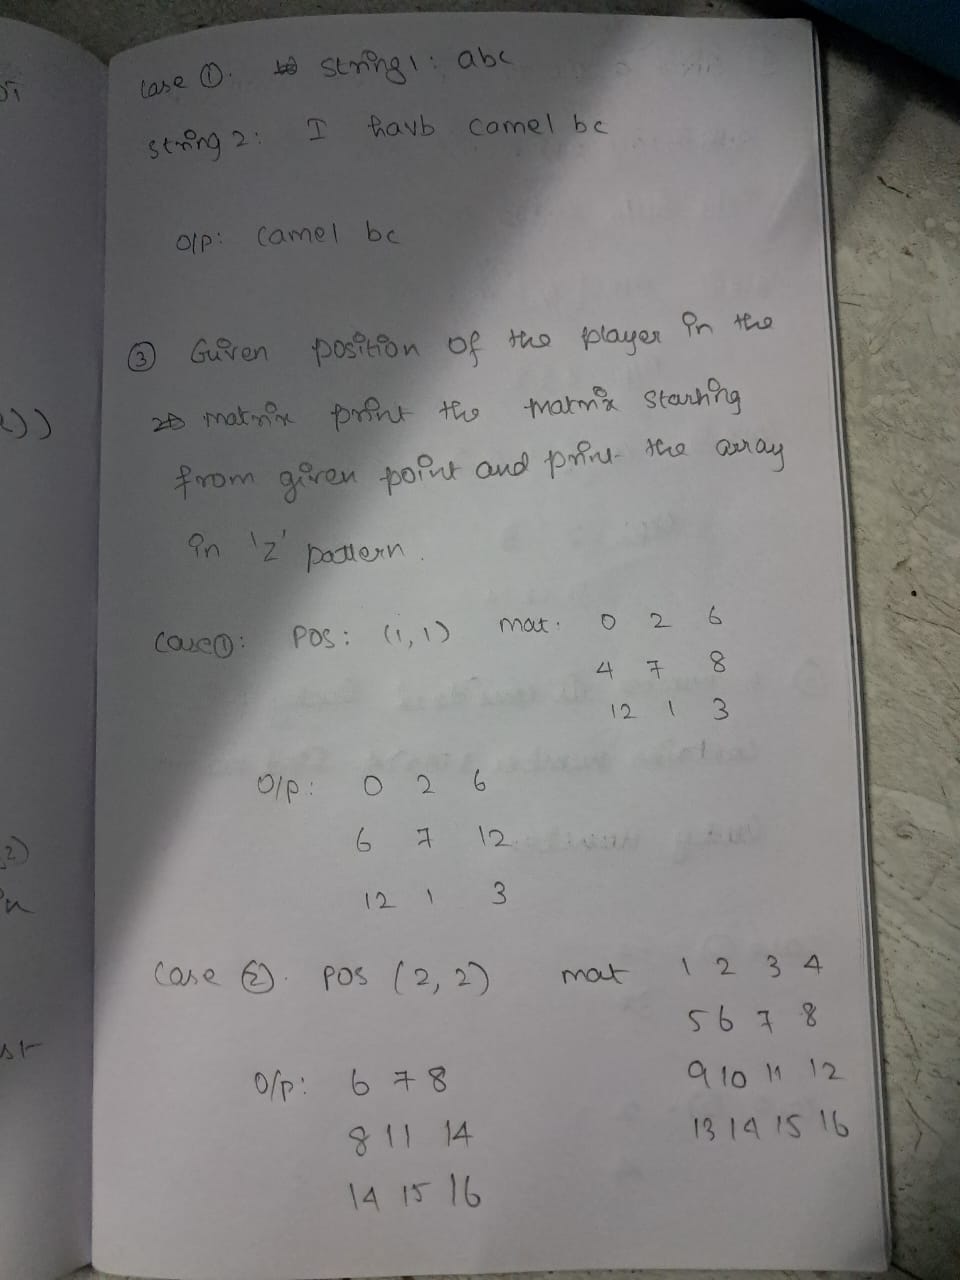 Case ①. string1: abc
string 2: I havb camel bc
o/p: camel bc
③ Guiven position of the player in the
matrix print the matrix starting
from given point and print the array
in 'z' pattern.
Case①: POS: (1,1) mat: 0 2 6
4 7 8
12 1 3
O/p: 0 2 6
6 7 12
12 1 3
Case ②. POS (2,2) mat 1 2 3 4
5 6 7 8
O/p: 6 7 8 9 10 11 12
8 11 14 13 14 15 16
14 15 16